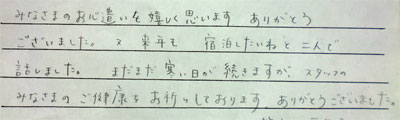 みなさまのお心遣いを嬉しく思います ありがとう
ございました。又 来年も 宿泊したいねと二人で
話しました。 まだまだ寒い日が続きますが、スタッフの
みなさまのご健康をお祈りしております ありがとうございました。